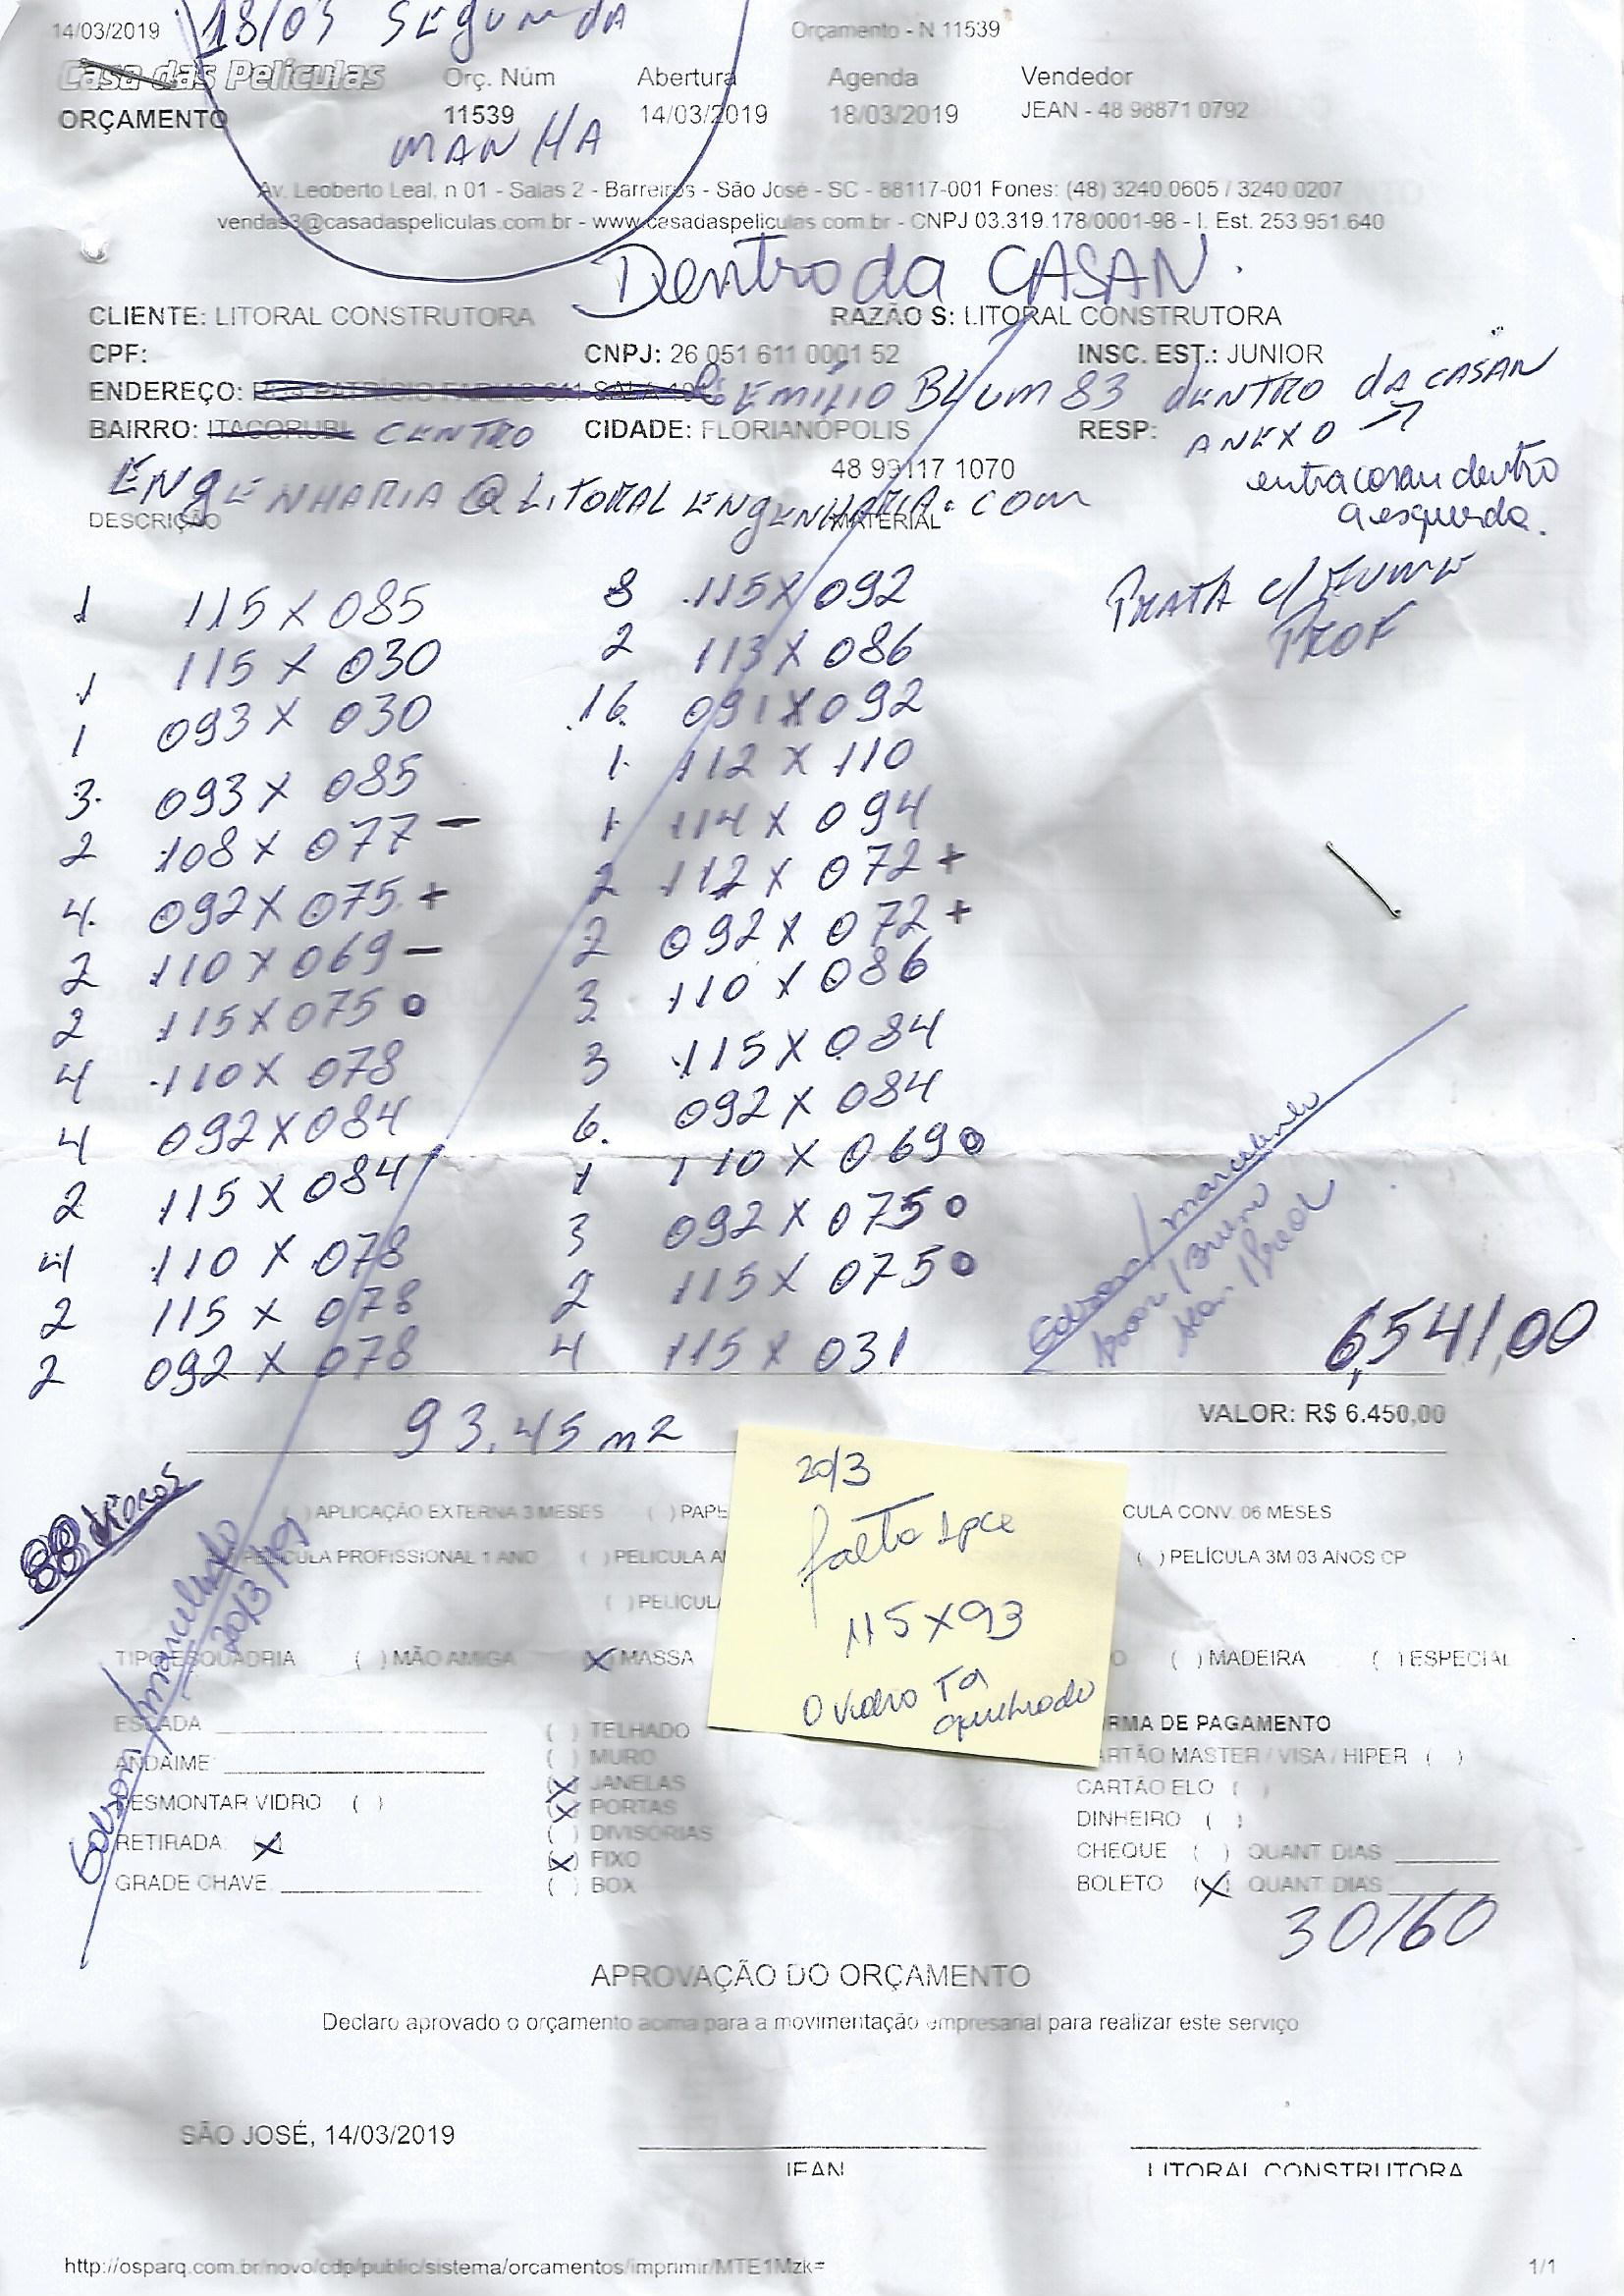 14/03/2019 18/03 SEGUNDA Orçamento - N 11539
Casa das Películas Orç. Núm Abertura Agenda Vendedor
ORÇAMENTO 11539 14/03/2019 18/03/2019 JEAN - 48 98871 0792
MANHA
Av. Leoberto Leal, n 01 - Salas 2 - Barreiros - São José - SC - 88117-001 Fones: (48) 3240.0605 / 3240.0207
vendas3@casadaspeliculas.com.br - www.casadaspeliculas.com.br - CNPJ 03.319.178/0001-98 - I. Est. 253.951.640
Dentro da CASAN.
CLIENTE: LITORAL CONSTRUTORA RAZÃO S: LITORAL CONSTRUTORA
CPF: CNPJ: 26 051 611 0001 52 INSC. EST.: JUNIOR
ENDEREÇO: EMILIO BLUM 83 DENTRO DA CASAN
BAIRRO: ITACORUBI CENTRO CIDADE: FLORIANÓPOLIS RESP: ANEXO
48 99117 1070 entra casan dentro
ENGENHARIA@LITORALENGENHARIA.COM a esquerda.
DESCRIÇÃO MATERIAL
PRATA c/ FUME
PROF
1 115 X 085 8 115 X 092
1 115 X 030 2 113 X 086
1 093 X 030 16. 091 X 092
3. 093 X 085 1. 112 X 110
2 108 X 077 - 1 114 X 094
4. 092 X 075 + 2 112 X 072 +
2 110 X 069 - 2 092 X 072 +
2 115 X 075 o 3. 110 X 086
4 110 X 078 3 115 X 084
4 092 X 084 6. 092 X 084
2 115 X 084 1 110 X 069 o
4 110 X 078 3 092 X 075 o
2 115 X 078 2 115 X 075 o
2 092 X 078 4 115 X 031
6,541,00
VALOR: R$ 6.450,00
93.45 m2
88 vidros
20/3
falta 1pce
115 X 93
O vidro TA
quebrado
( ) APLICAÇÃO EXTERNA 3 MESES ( ) PAPE CULA CONV. 06 MESES
PELICULA PROFISSIONAL 1 ANO ( ) PELICULA A ( ) PELÍCULA 3M 03 ANOS CP
( ) PELICUL
20/3/19
TIPO ESQUADRIA ( ) MÃO AMIGA (X) MASSA O ( ) MADEIRA ( ) ESPECIAL
ESCADA ( ) TELHADO RMA DE PAGAMENTO
ANDAIME: ( ) MURO ARTÃO MASTER / VISA / HIPER ( )
(X) JANELAS CARTÃO ELO ( )
DESMONTAR VIDRO ( ) (X) PORTAS DINHEIRO ( )
RETIRADA: (X) ( ) DIVISORIAS CHEQUE ( ) QUANT DIAS
(X) FIXO
GRADE CHAVE ( ) BOX BOLETO (X) QUANT DIAS
30/60
APROVAÇÃO DO ORÇAMENTO
Declaro aprovado o orçamento acima para a movimentação empresarial para realizar este serviço
SÃO JOSÉ, 14/03/2019
JEAN LITORAL CONSTRUTORA
http://osparq.com.br/novo/cdp/public/sistema/orcamentos/imprimir/MTE1Mzk= 1/1